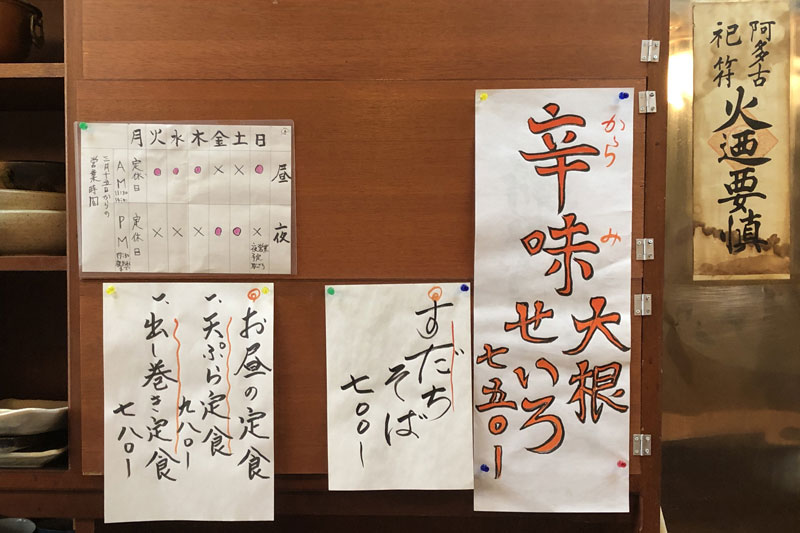 阿多古
祀符
火迺要慎
辛味
からみ
大根
せいろ
七五〇ー
すだち
そば
七〇〇ー
お昼の定食
一、天ぷら定食
九八〇ー
一、出し巻き定食
七八〇ー
月 火 水 木 金 土 日
定休日 ● ● ● × × ● 昼
定休日 × × × ● ● × 夜
AM
PM
二月十五日からの
営業時間